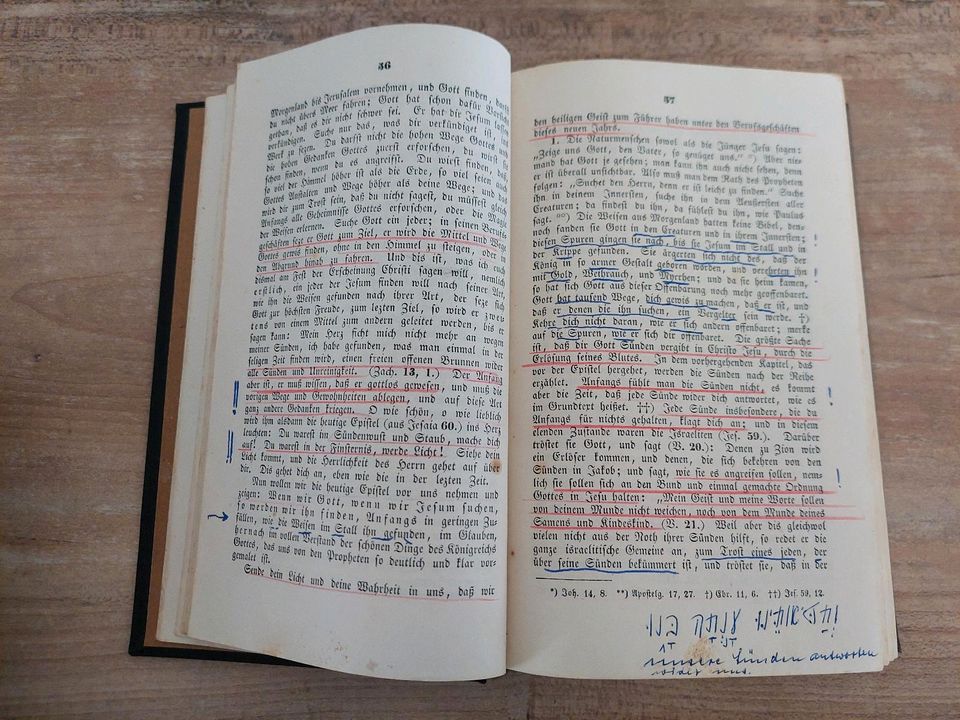 56
Morgenland bis Jerusalem vornehmen, und Gott finden, darfst
du nicht übers Meer fahren; Gott hat schon dafür Vorsicht
gethan, daß es dir nicht schwer sei. Er hat dir Jesum lassen
verkündigen. Suche nur das, was dir verkündiget ist, ins
Werk zu sezen. Du darfst nicht die hohen Wege Gottes und
die hohen Gedanken Gottes zuerst erforschen, du wirst sie
schon finden, wenn du es angreifst. Du wirst finden, daß
so viel der Himmel höher ist als die Erde, so viel seien auch
Gottes Anstalten und Wege höher als deine Wege; und das
wird dir zum Trost sein, daß du nicht sagest, du müssest gleich
Anfangs alle Geheimnisse Gottes erforschen, oder die Magie
der Weisen erlernen. Suche Gott ein jeder; in seinen Berufs-
geschäften seze er Gott zum Ziel, er wird die Mittel und Wege
gewis finden, ohne in den Himmel zu steigen, oder in
den Abgrund hinab zu fahren. Und dis ist, was ich euch
dismal am Fest der Erscheinung Christi sagen will, nemlich
erstlich, ein jeder der Jesum finden will nach seiner Art,
wie ihn die Weisen gefunden nach ihrer Art, der seze sich
Gott zur höchsten Freude, zum lezten Ziel, so wird er zwei-
tens von einem Mittel zum andern geleitet werden, bis er
sagen kann: Mein Herz ficht mich nicht mehr an wegen
meiner Sünden, ich habe gefunden, was man einmal in der
seligen Zeit finden wird, einen freien offenen Brunnen wider
alle Sünden und Unreinigkeit. (Zach. 13, 1.) Der Anfang
aber ist, er muß wissen, daß er gottlos gewesen, und muß die
vorigen Wege und Gewohnheiten ablegen, und auf diese Art
ganz andere Gedanken kriegen. O wie schön, o wie lieblich
wird ihm alsdann die heutige Epistel (aus Jesaia 60.) ins Herz
leuchten: Du warest im Sündenwust und Staub, mache dich
auf! Du warest in der Finsternis, werde Licht! Siehe dein
Licht kommt, und die Herrlichkeit des Herrn gehet auf über
Dir. Dis gehet dich an, eben wie die in der lezten Zeit.
Nun wollen wir die heutige Epistel vor uns nehmen und
zeigen: Wenn wir Gott, wenn wir Jesum suchen,
so werden wir ihn finden, Anfangs in geringen Zu-
fällen, wie die Weisen im Stall ihn gefunden, im Glauben,
hernach im vollen Verstand der schönen Dinge des Königreichs
Gottes, das uns von den Propheten so deutlich und klar vor-
gemalet ist.
Sende dein Licht und deine Wahrheit in uns, daß wir
57
den heiligen Geist zum Führer haben unter den Berufsgeschäften
dieses neuen Jahrs.
1. Die Naturmenschen sowol als die Jünger Jesu sagen:
„Zeige uns Gott, den Vater, so genüget uns." *) Aber nie-
mand hat Gott je gesehen; man kann ihn auch nicht sehen, denn
er ist überall unsichtbar. Also muß man dem Rath des Propheten
folgen: „Suchet den Herrn, denn er ist leicht zu finden." Suche
ihn in deinem Innersten, suche ihn in dem Aeußersten aller
Creaturen; da findest du ihn, da fühlest du ihn, wie Paulus
sagt. **) Die Weisen aus Morgenland hatten keine Bibel, den-
noch fanden sie Gott in den Creaturen und in ihrem Innersten;
diesen Spuren gingen sie nach, bis sie Jesum im Stall und in
der Krippe gefunden. Sie ärgerten sich nicht des, daß der
König in so armer Gestalt geboren worden, und verehrten ihn
mit Gold, Weihrauch, und Myrrhen; und da sie heim kamen,
so hat sich Gott aus dieser Offenbarung noch mehr geoffenbaret.
Gott hat tausend Wege, dich gewis zu machen, daß er ist, und
daß er denen die ihn suchen, ein Vergelter sein werde. †)
Kehre dich nicht daran, wie er sich andern offenbaret; merke
auf die Spuren, wie er sich dir offenbaret. Die größte Sache
ist, daß dir Gott Sünden vergibt in Christo Jesu, durch die
Erlösung seines Blutes. In dem vorhergehenden Kapitel, das
vor der Epistel hergehet, werden die Sünden nach der Reihe
erzählet. Anfangs fühlt man die Sünden nicht, es kommt
aber die Zeit, daß jede Sünde wider dich antwortet, wie es
im Grundtert heißet. ††) Jede Sünde insbesondere, die du
Anfangs für nichts gehalten, klagt dich an; und in diesem
Zustande waren die Israeliten (Jes. 59.). Darüber
tröstet sie Gott, und sagt (V. 20.): Denen zu Zion wird
ein Erlöser kommen, und denen, die sich bekehren von den
Sünden in Jakob; und sagt, wie sie es angreifen sollen, nem-
lich sie sollen sich an den Bund und einmal gemachte Ordnung
Gottes in Jesu halten: „Mein Geist und meine Worte sollen
von deinem Munde nicht weichen, noch von dem Munde deines
Samens und Kindeskind. (V. 21.) Weil aber dis gleichwol
vielen nicht aus der Noth ihrer Sünden hilft, so redet er die
ganze israelitische Gemeine an, zum Trost eines jeden, der
über seine Sünden bekümmert ist, und tröstet sie, daß in der
*) Joh. 14, 8. **) Apostelg. 17, 27. †) Ebr. 11, 6. ††) Jes. 59, 12.
unsere Sünden antworten
wider uns.